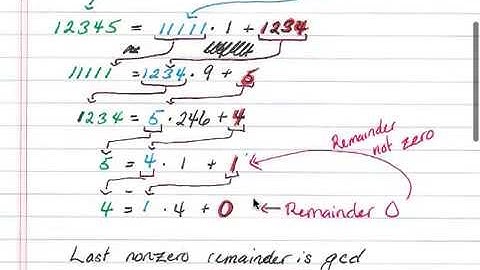 12345 = 11111 · 1 + 1234
11111 = 1234 · 9 + 5
1234 = 5 · 246 + 4
Remainder
not zero
5 = 4 · 1 + 1
4 = 1 · 4 + 0 ← Remainder 0
Last nonzero remainder is gcd